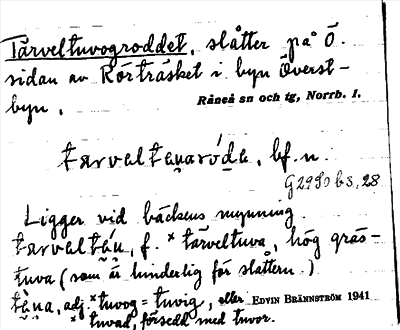 Tärveltuvogroddet, slåtter på Ö.
sidan av Rörträsket i byn Överst-
byn.
Råneå sn och tg, Norrb. l.
bf. n.
G2990 bs, 28
Ligger vid bäckens mynning.
f. × tärveltuva, hög gräs-
tuva (som är hinderlig för slåttern.)
adj. × tuvog = tuvig, eller EDVIN BRÄNNSTRÖM 1941
× tuvad, försedd med tuvor.